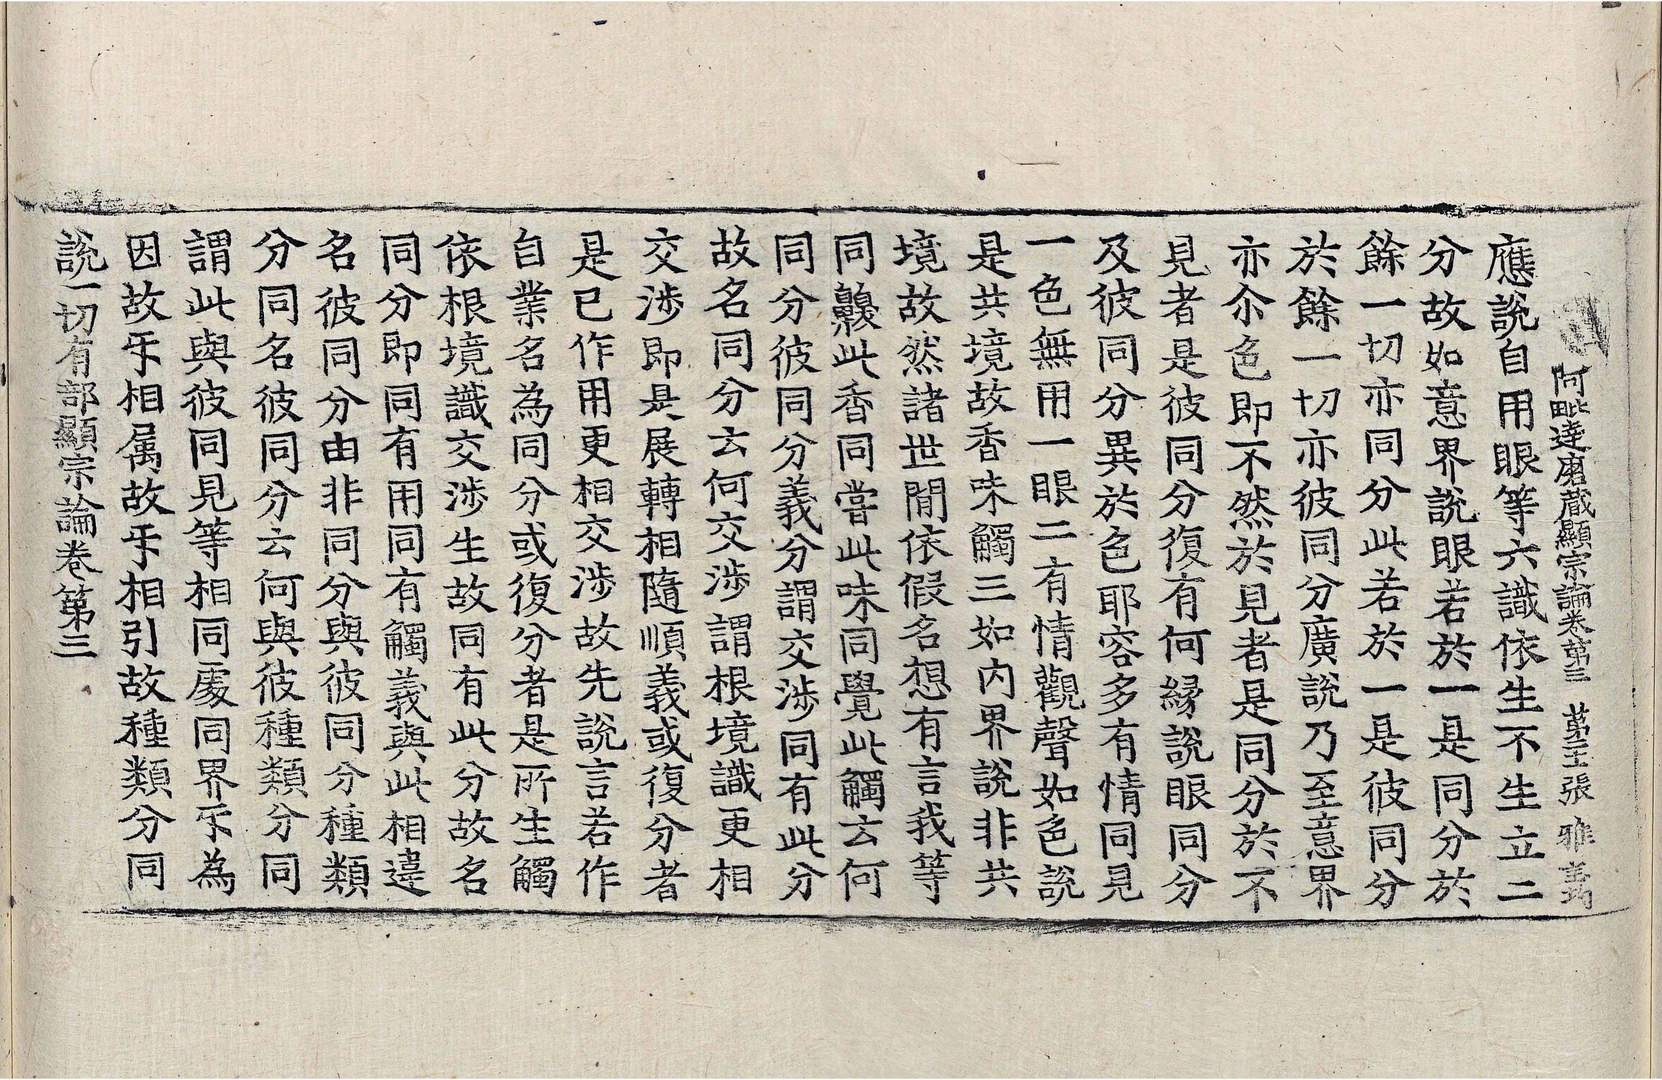 阿毗達磨蔵顯宗論卷第三 第二十張 雅
應說自用眼等六識依生不生立二
分故如意界說眼若於一是同分於
餘一切亦同分此若於一是彼同分
於餘一切亦彼同分廣說乃至意界
亦尒色即不然於見者是同分於不
見者是彼同分復有何縁說眼同分
及彼同分異於色耶容多有情同見
一色無用一眼二有情觀聲如色說
是共境故香味觸三如內界說非共
境故然諸世間依假名想有言我等
同齅此香同嘗此味同覺此觸云何
同分彼同分義分謂交渉同有此分
故名同分云何交渉謂根境識更相
交渉即是展轉相隨順義或復分者
是已作用更相交渉故先說言若作
自業名為同分或復分者是所生觸
依根境識交渉生故同有此分故名
同分即同有用同有觸義與此相違
名彼同分由非同分與彼同分種類
分同名彼同分云何與彼種類分同
謂此與彼同見等相同處同界㸦為
因故㸦相属故㸦相引故種類分同
說一切有部顯宗論卷第三